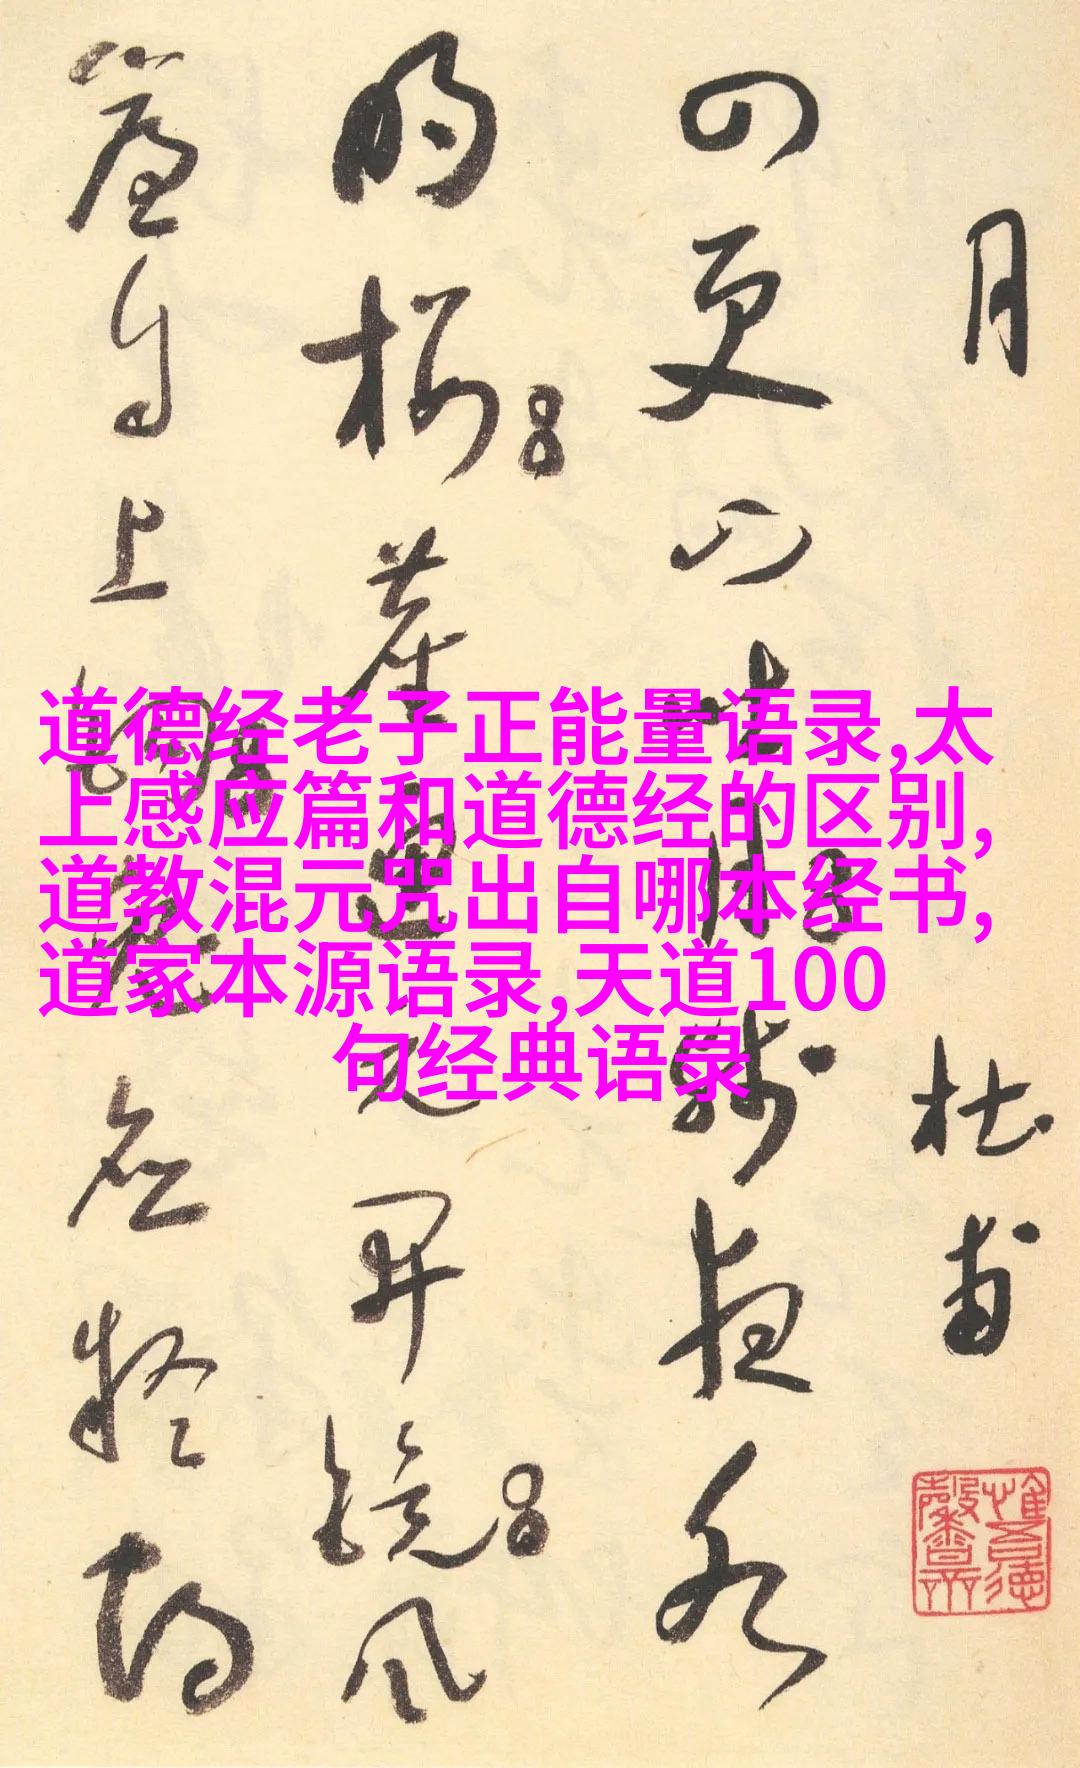 月 杜甫
四更山吐月残夜水
明楼尘匣元开镜风
簾自上鈎兔应疑鹤
惟吾德馨
道德经老子正能量语录,太
上感应篇和道德经的区别,
道教混元咒出自哪本经书,
道家本源语录,天道100
句经典语录